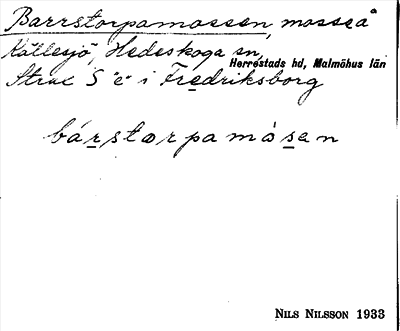 Barrstorpamossen, mosse å
Källesjö, Hedeskoga sn,
Herrestads hd, Malmöhus län
Strax S "e" i Fredriksborg
bárstorpamòsen
NILS NILSSON 1933